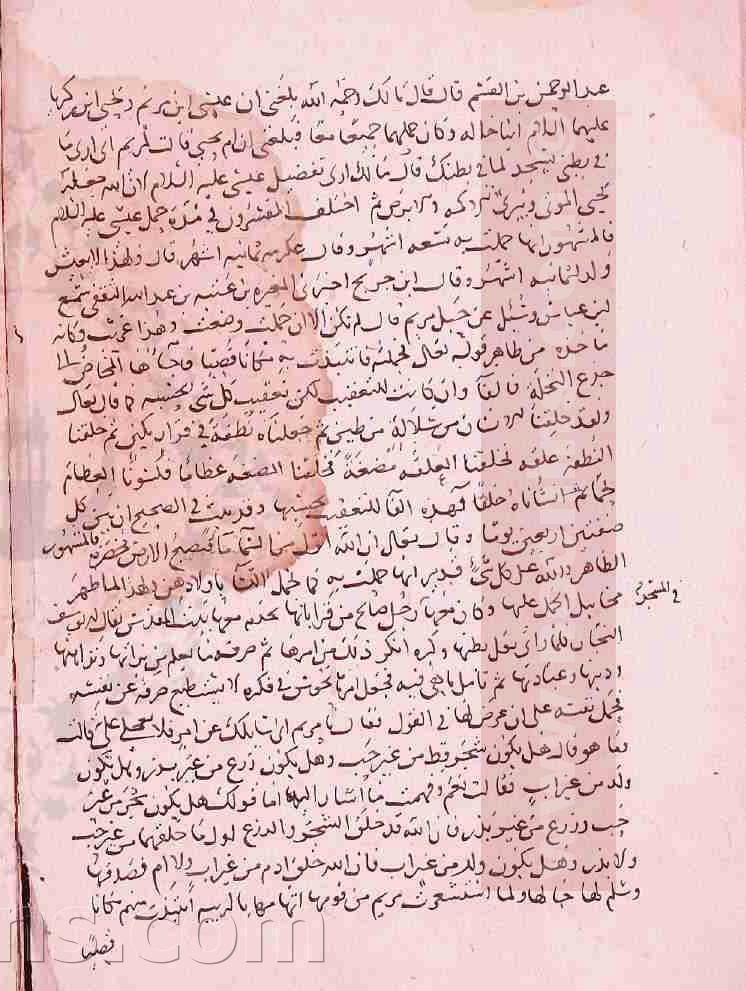 عبد الرحمن بن القسم قال قال مالك رحمه الله بلغنى ان عيسى ابن مريم ويحيى ابن زكريا
عليهما السلام ابنا خاله وكان حملهما جميعا معا فبلغنى ان ام يحيى قالت لمريم انى ارى ما
فى بطنى يسجد لما فى بطنك قال مالك ارى تفضيل عيسى عليه السلام ان الله جعله
يحيى الموتى ويبرئ الاكمه والابرص ثم اختلف المفسرون فى مدة حمل عيسى عليه السلام
فالمشهور انها حملت به تسعه اشهر وقال عكرمه ثمانيه اشهر قال ولهذا لا يعيش
ولد لثمانيه اشهر وقال ابن جريج اخبرنى المغيره بن عتبه بن عبد الله الثقفى سمع
ابن عباس وسئل عن حبل مريم قال لم تكن الا ان حملت وضعت وهذا غريب وكانه
ماخذه من ظاهر قوله تعالى فحملته فانتبذت به مكانا قصيا فاجاءها المخاض الى
جذع النخلة فالفا وان كانت للتعقيب لكن تعقيب كل شى بحسبه كما قال تعالى
ولقد خلقنا الانسان من سلالة من طين ثم جعلناه نطفة فى قرار مكين ثم خلقنا
النطفة علقه فخلقنا العلقه مضغة فخلقنا المضغه عظاما فكسونا العظام
لحما ثم انشاناه خلقا فهذه الفا للتعقيب بحسبها وقد ثبت فى الصحيح ان بين كل
صفتين اربعين يوما وقال تعالى ان الله انزل من السما ما فتصبح الارض مخضرة فالمشهور
الظاهر والله على كل شى قدير انها حملت به كما تحمل النسا باولادهن ولهذا لما ظهر
مخايل الحمل عليها وكان معها رجل صالح من قراباتها يخدم معها بيت المقدس يقال له يوسف
فى المسجد
النجار فلما راى ثقل بطنها وكبره انكر ذلك من امرها ثم صرفه ما يعلم من براتها ونزاهتها
ودينها وعبادتها ثم تامل ما هى فيه فجعل امرها يجوس فى فكره لا يستطيع صرفه عن نفسه
فحمل نفسه على ان عرض لها فى القول فقال يا مريم انى سايلك عن امر فلا تعجلى على قالت
وما هو قال هل يكون شجر قط من غير حب وهل يكون زرع من غير بذر وهل يكون
ولد من غير اب فقالت نعم وفهمت ما اشار اليه اما قولك هل يكون شجر من غير
حب وزرع من غير بذر فان الله قد خلق الشجر والزرع اول ما خلقهما من غير حب
ولا بذر وهل يكون ولد من غير اب فان الله خلق ادم من غير اب ولا ام فصدقها
وسلم لها حالها ولما استشعرت مريم من قومها اتهامها بالريبه انتبذت منهم مكانا
قصيا
ns.com